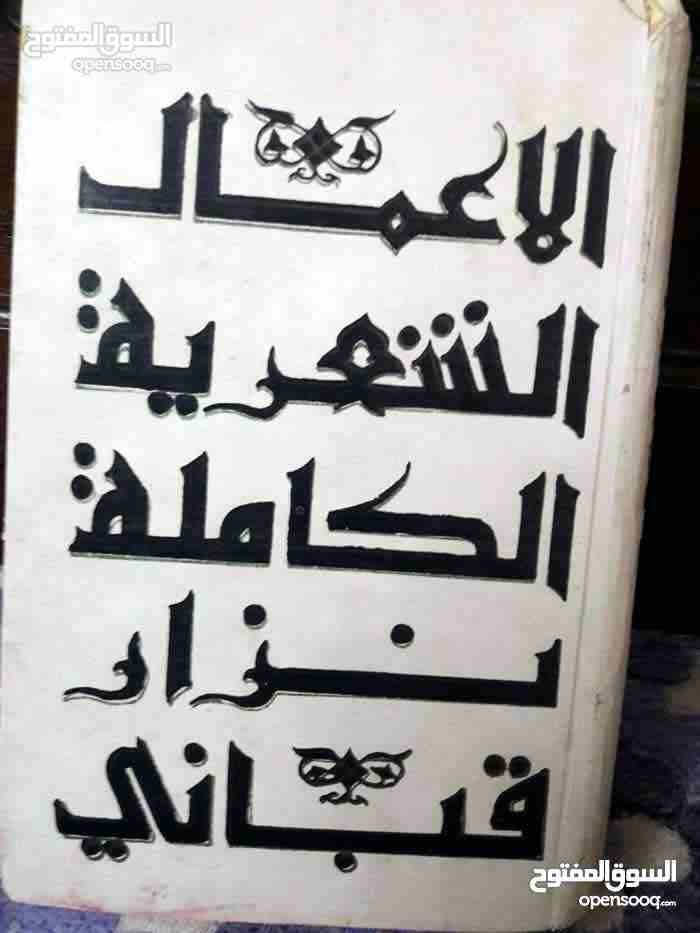 السوق المفتوح
opensooq.com
الاعمال
الشعرية
الكاملة
نزار
قباني
السوق المفتوح
opensooq.com